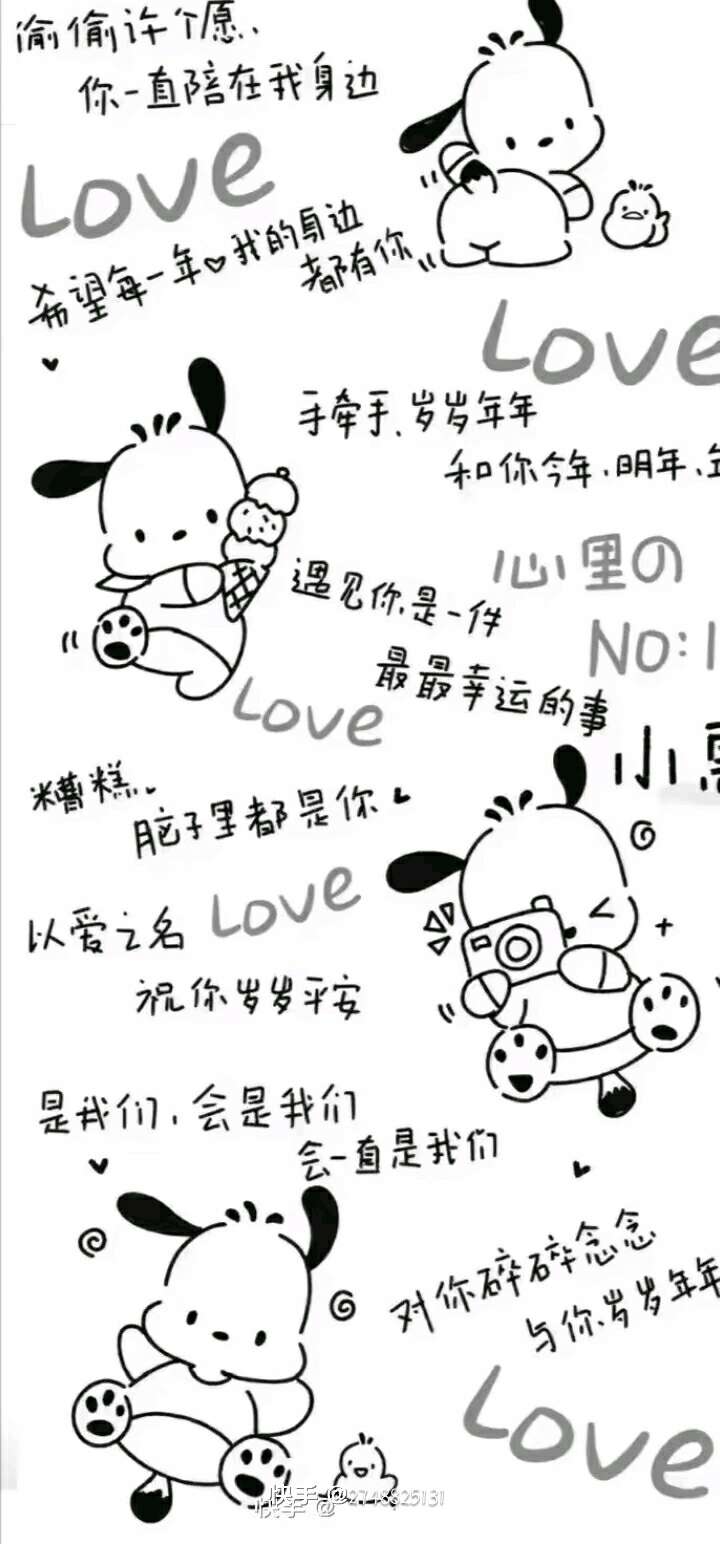 偷偷许个愿、
你一直陪在我身边
Love
希望每一年♥我的身边
都有你
Love
手牵手、岁岁年年
和你今年、明年、
心里の
NO:1
遇见你是一件
最最幸运的事
Love
小
糟糕、
脑子里都是你
Love
以爱之名
祝你岁岁平安
是我们，会是我们
会一直是我们
对你碎碎念念
与你岁岁年年
Love
快手 @2748825131
快手 @